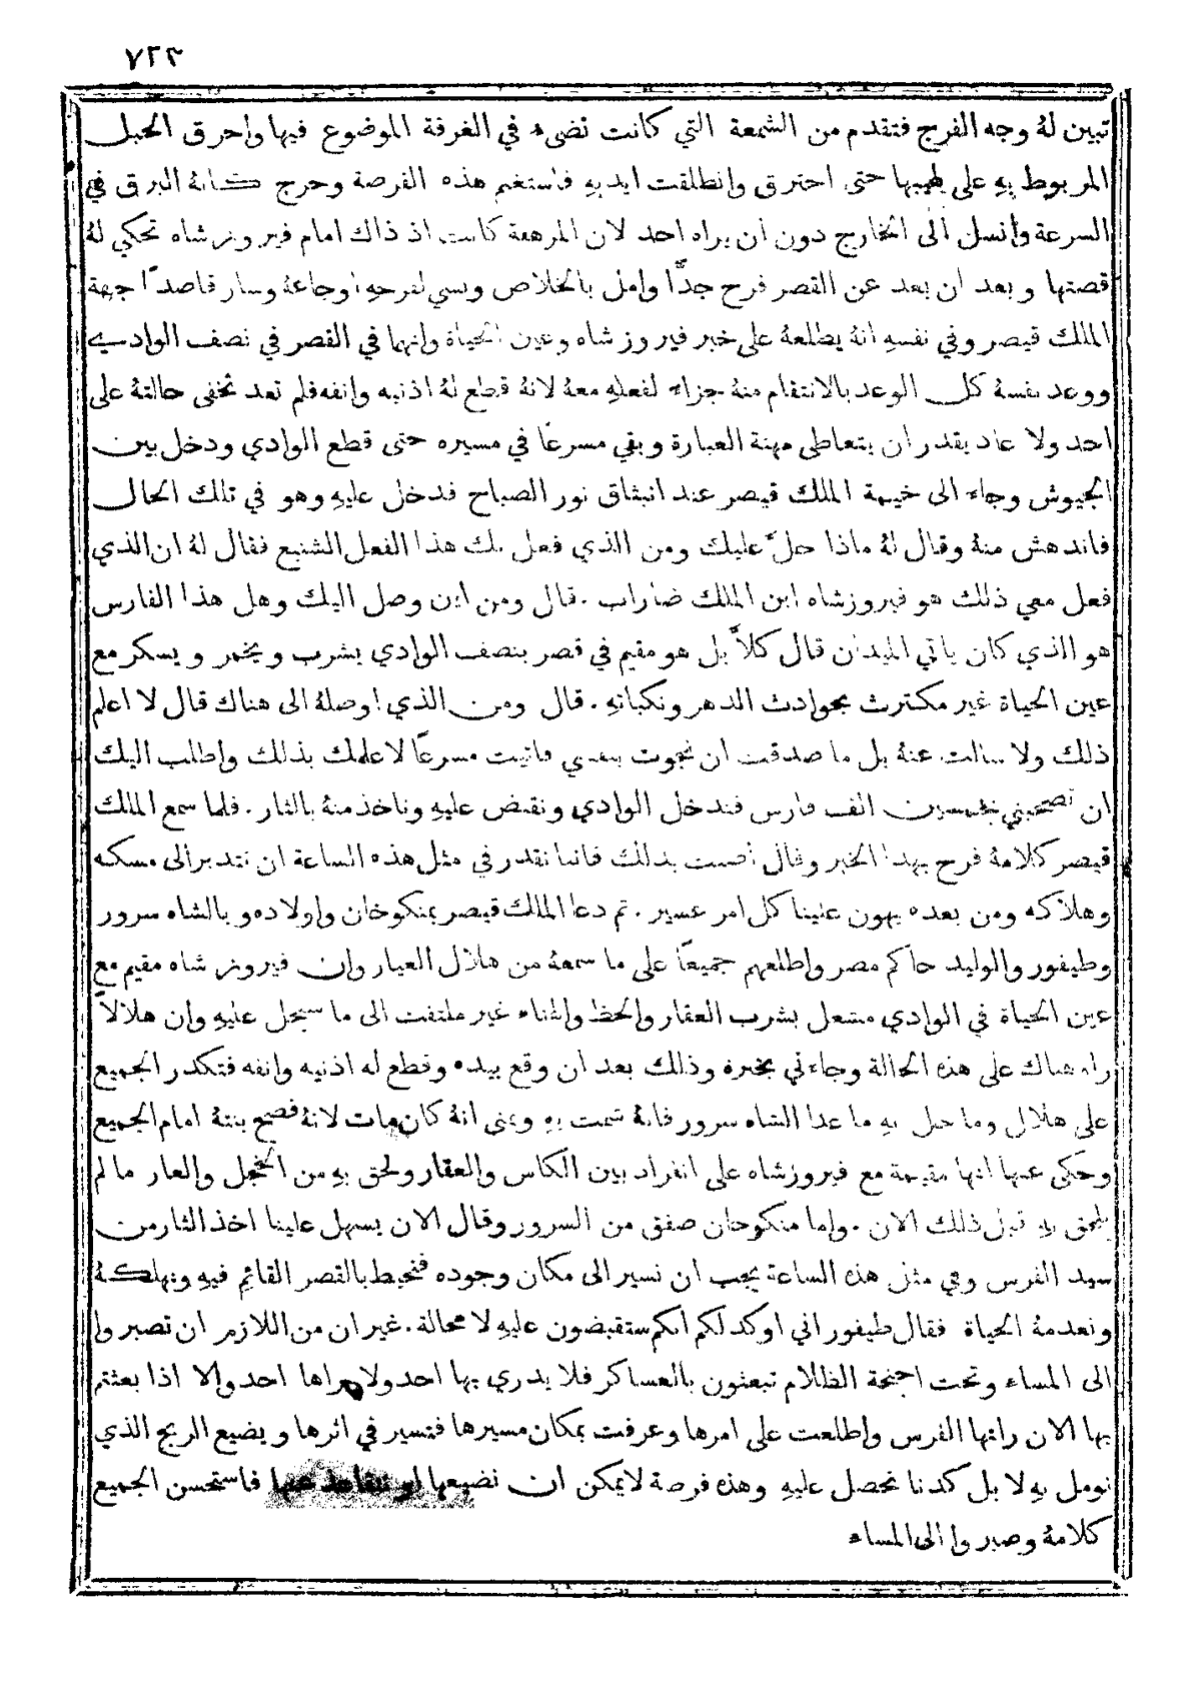 ٧٢٣
تبين لهُ وجه الفرج فتقدم من الشمعة التي كانت تضيء في الغرفة الموضوع فيها واحرق الحبل
المربوط بهِ على لهيبها حتى احترق وانطلقت ايديهِ فاستغنم هذه الفرصة وخرج كانهُ البرق في
السرعة وانسل الى الخارج دون ان يراه احد لان المرهفة كانت اذ ذاك امام فيروزشاه تحكي لهُ
قصتها وبعد ان بعد عن القصر فرح جدًّا وامل بالخلاص ونسي لفرحهِ اوجاعهُ وسار قاصدًا جهة
الملك قيصر وفي نفسهِ انهُ يطلعهُ على خبر فيروزشاه وعين الحياة وانهما في القصر في نصف الوادي
ووعد نفسهُ كل الوعد بالانتقام منهُ جزاء لفعلهِ معهُ لانهُ قطع لهُ اذنيه وانفه فلم تعد تخفى حالتهُ على
احد ولا عاد يقدر ان يتعاطى مهنة العيارة وبقي مسرعًا في مسيره حتى قطع الوادي ودخل بين
الجيوش وجاء الى خيمة الملك قيصر عند انبثاق نور الصباح فدخل عليهِ وهو في تلك الحال
فاندهش منهُ وقال لهُ ماذا حلَّ عليك ومن الذي فعل بك هذا الفعل الشنيع فقال لهُ ان الذي
فعل معي ذلك هو فيروزشاه ابن الملك ضاراب . قال ومن اين وصل اليك وهل هذا الفارس
هو الذي كان ياتي الميدان قال كلاَّ بل هو مقيم في قصر بنصف الوادي يشرب ويخمر ويسكر مع
عين الحياة غير مكترث بحوادث الدهر ونكباتهِ . قال ومن الذي اوصلهُ الى هناك قال لا اعلم
ذلك ولا سالت عنهُ بل ما صدقت ان نجوت بنفسي فاتيت مسرعًا لاعلمك بذلك واطلب اليك
ان تصحبني بخمسين الف فارس فندخل الوادي ونقبض عليهِ وناخذ منهُ بالثار . فلما سمع الملك
قيصر كلامهُ فرح بهذا الخبر وقال اصبت بذلك فاننا نقدر في مثل هذه الساعة ان نتدبر الى مسكه
وهلاكه ومن بعده يهون علينا كل امر عسير . ثم دعا الملك قيصر بمنكوخان واولاده وبالشاه سرور
وطيفور والوليد حاكم مصر واطلعهم جميعًا على ما سمعهُ من هلال العيار وان فيروز شاه مقيم مع
عين الحياة في الوادي مشتغل بشرب العقار والحظ والهناء غير ملتفت الى ما سيحل عليهِ وان هلالاً
راه هناك على هذه الحالة وجاء لي بخبره وذلك بعد ان وقع بيده وقطع له اذنيه وانفه فتكدر الجميع
على هلال وما حل بهِ ما عدا الشاه سرور فانهُ شمت بهِ وتمنى انهُ كان مات لانهُ فضح بنتهُ امام الجميع
وحكى عنها انها مقيمة مع فيروزشاه على انفراد بين الكاس والعقار ولحق بهِ من الخجل والعار ما لم
يلحق بهِ قبل ذلك الان . واما منكوخان صفق من السرور وقال الان يسهل علينا اخذ الثار من
سيد الفرس وفي مثل هذه الساعة يجب ان نسير الى مكان وجوده فنحيط بالقصر القائم فيهِ ونهلكهُ
ونعدمهُ الحياة فقال طيفور اني اوكد لكم انكم ستقبضون عليهِ لا محالة . غير ان من اللازم ان تصبروا
الى المساء وتحت اجنحة الظلام تبعثون بالعساكر فلا يدري بها احد ولا يراها احد والا اذا بعثتم
بها الان راتها الفرس واطلعت على امرها وعرفت بمكان مسيرها فتسير في اثرها ويضيع الربح الذي
نومل بهِ لا بل كدنا نحصل عليهِ وهذه فرصة لا يمكن ان نضيعها او نتقاعد عنها فاستحسن الجميع
كلامهُ وصبروا الى المساء